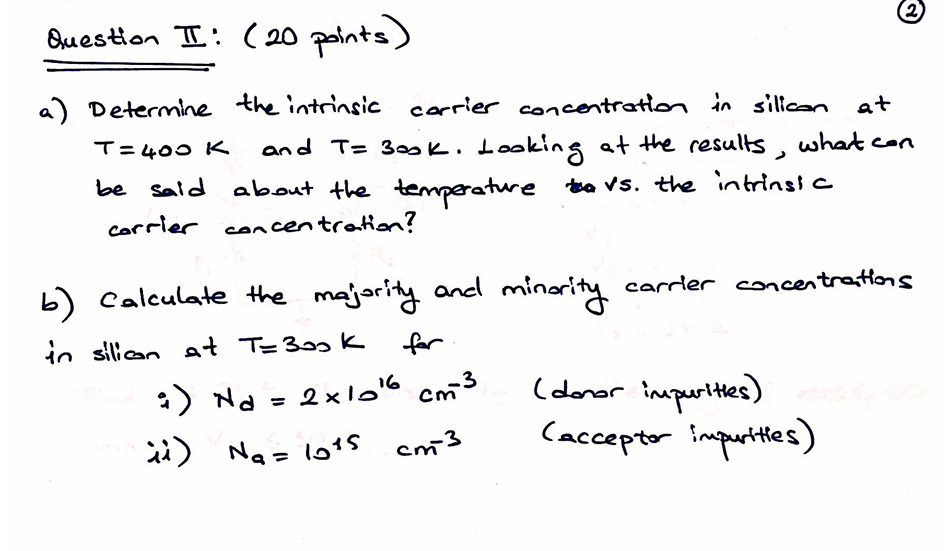 2
Question II: (20 points)
a) Determine the intrinsic carrier concentration in silicon at
T=400 K and T= 300K. Looking at the results, what can
be said about the temperature vs. the intrinsic
carrier concentration?
b) Calculate the majority and minority carrier concentrations
in silicon at T=300 K for
i) Nd = 2x10^16 cm^-3 (donor impurities)
ii) Na = 10^15 cm^-3 (acceptor impurities)